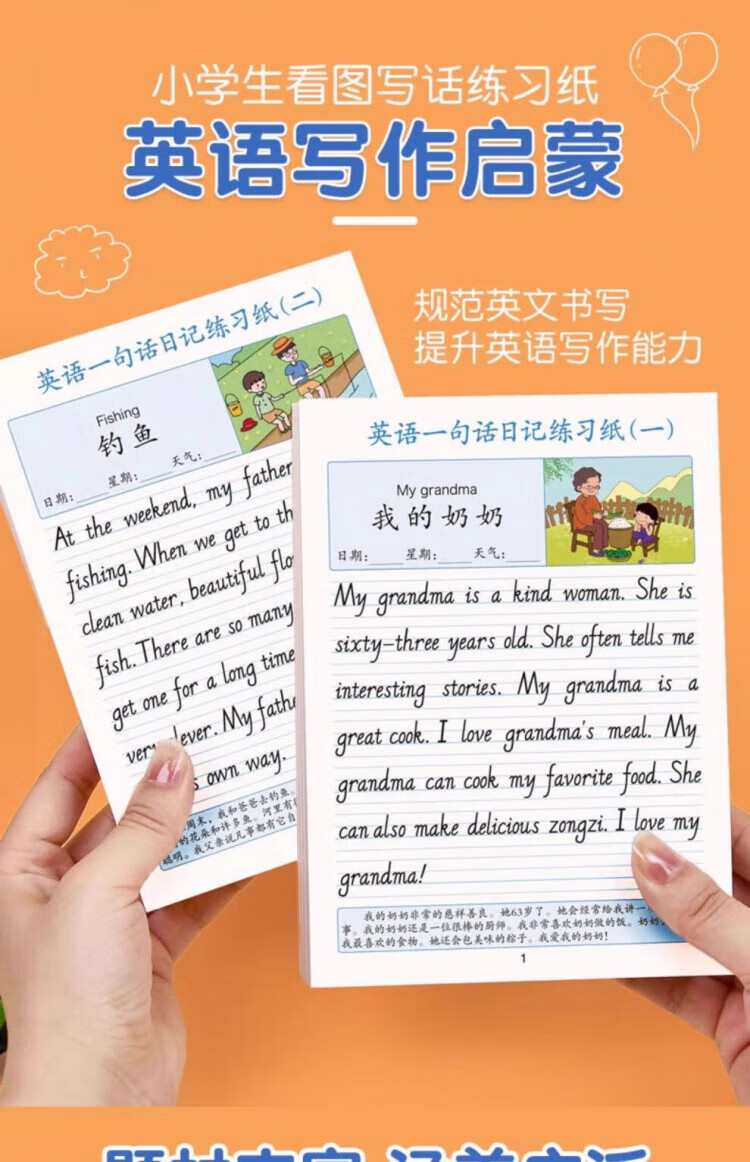 小学生看图写话练习纸
英语写作启蒙
规范英文书写
提升英语写作能力
英语一句话日记练习纸(二)
Fishing
钓鱼
日期: 星期: 天气:
At the weekend, my father
fishing. When we get to th
clean water, beautiful flo
fish. There are so many
get one for a long time
very clever. My fathe
s own way.
周末,我和爸爸去钓鱼。
的花朵和许多鱼。河里有
聪明。我父亲说凡事都有它自
英语一句话日记练习纸(一)
My grandma
我的奶奶
日期: 星期: 天气:
My grandma is a kind woman. She is
sixty-three years old. She often tells me
interesting stories. My grandma is a
great cook. I love grandma's meal. My
grandma can cook my favorite food. She
can also make delicious zongzi. I love my
grandma!
我的奶奶非常的慈祥善良。她63岁了。她会经常给我讲一
事。我的奶奶还是一位很棒的厨师。我非常喜欢奶奶做的饭。奶奶
我最喜欢的食物。她还会包美味的粽子。我爱我的奶奶!
1